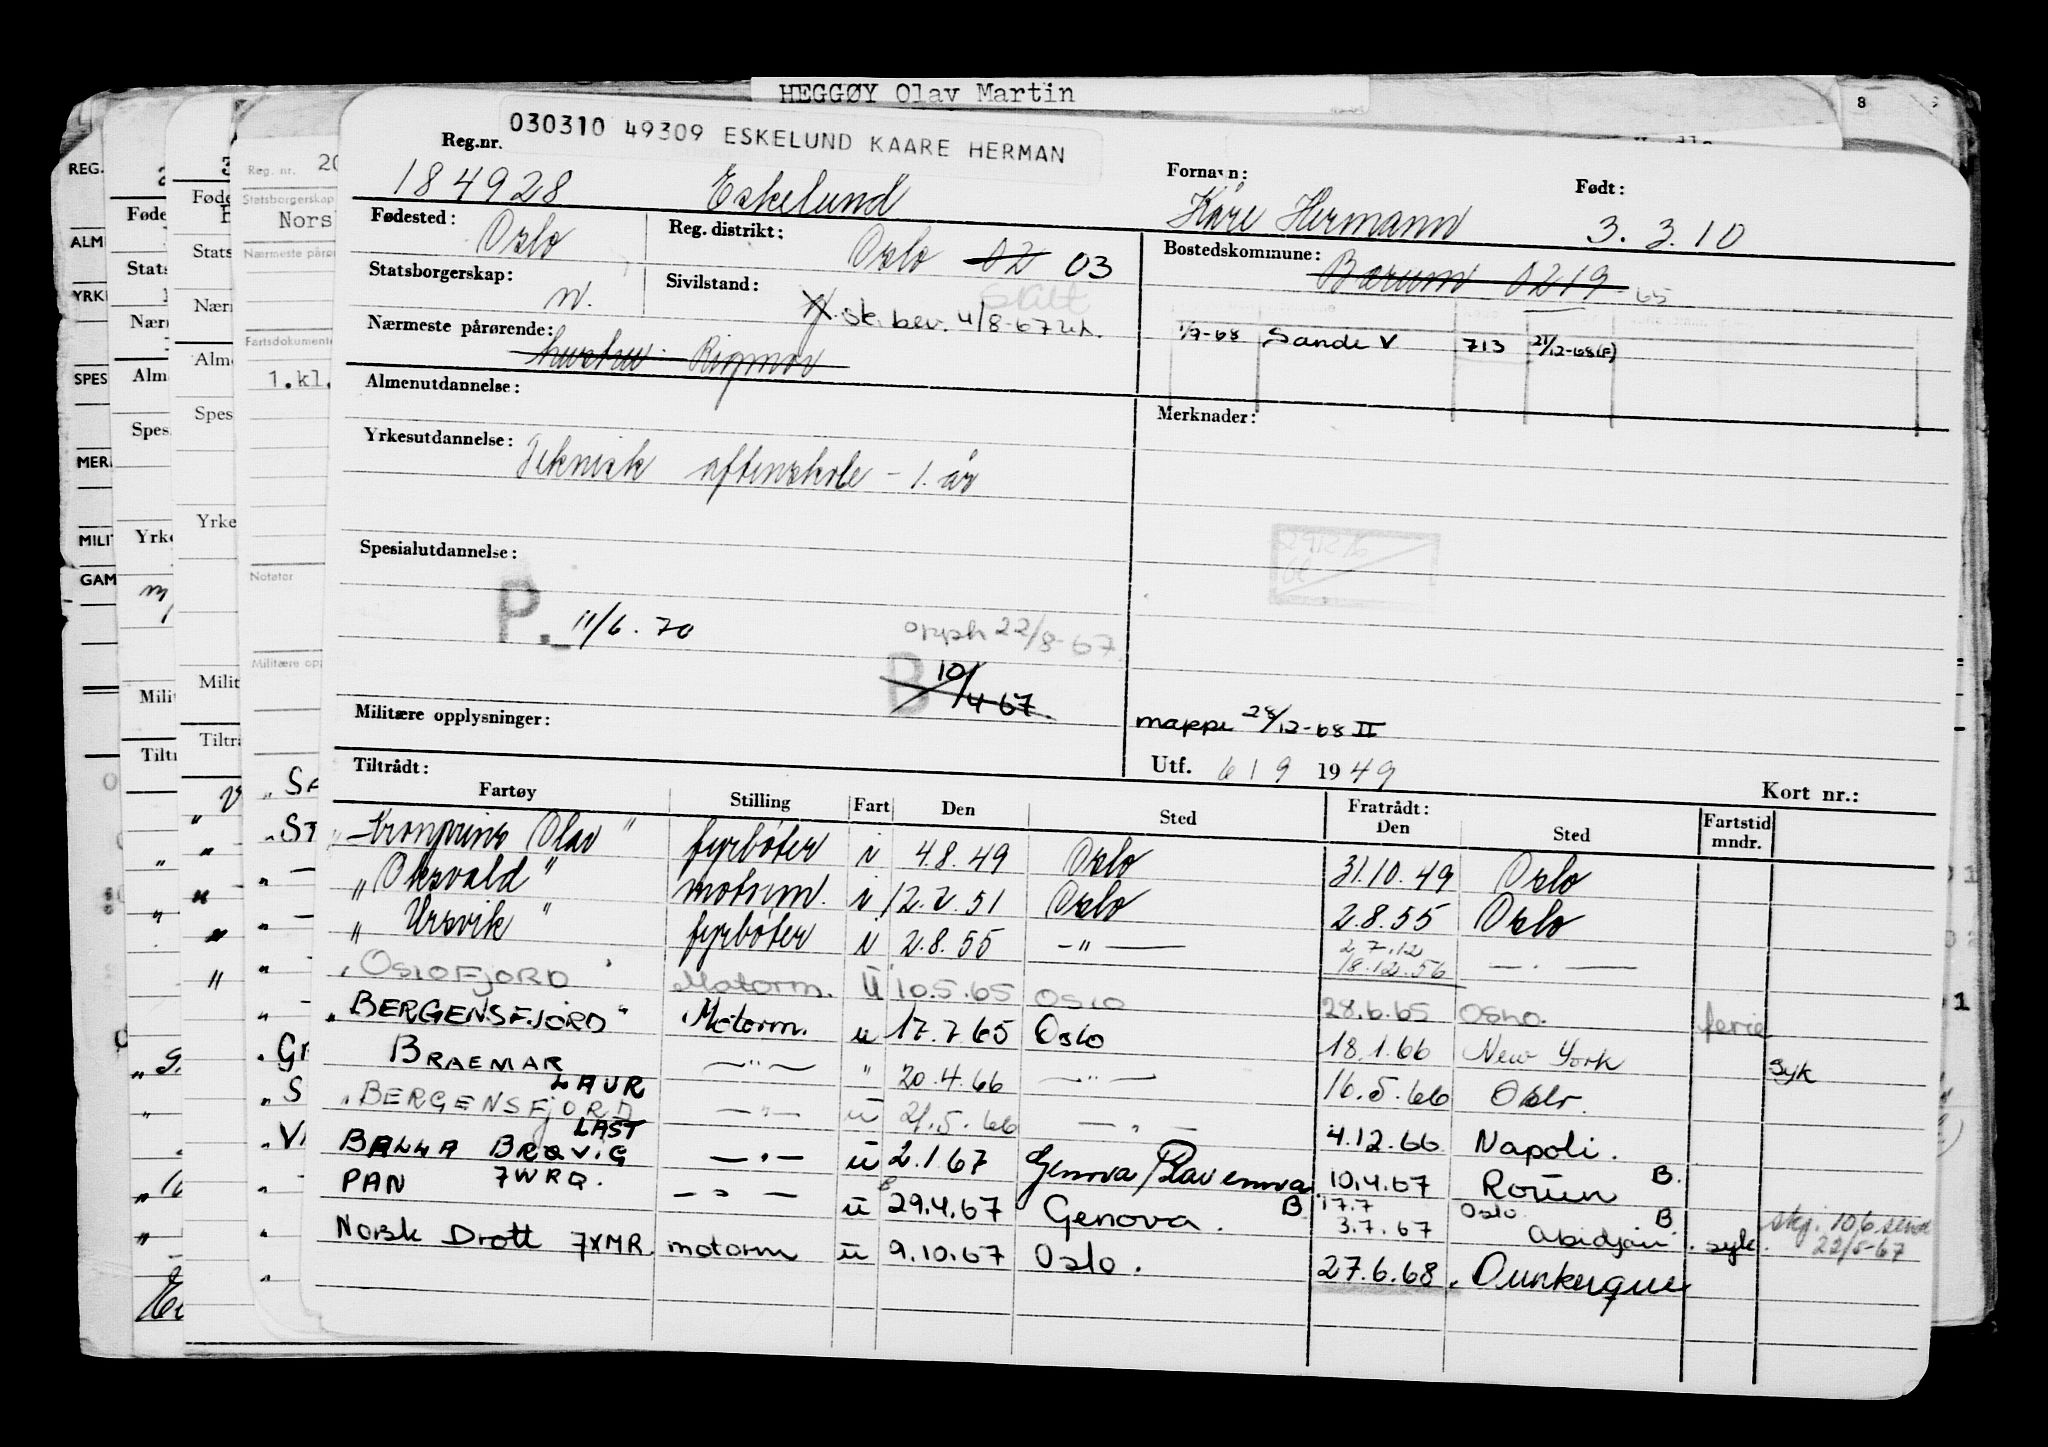 HEGGØY Olav Martin
030310 49309 ESKELUND KAARE HERMAN
Reg.nr. Fornavn: Født:
184928 Eskelund Kåre Hermann 3.3.10
Fødested: Oslo Reg. distrikt: Oslo 02 03 Bostedskommune: Bærum 0219 65
Statsborgerskap: n. Sivilstand: sk. bev. 4/8-67
1/7-68 Sande V 713 21/12-68(F)
Nærmeste pårørende: hustru Rigmor
Almenutdannelse: Merknader:
Yrkesutdannelse: Teknisk aftenskole - 1. år
Spesialutdannelse:
P. 11/6.70 opph 22/8-67
B 10/4-67.
Militære opplysninger: mappe 28/12-68 II
Utf. 6/9 1949 Kort nr.:
Tiltrådt: Fratrådt:
Fartøy Stilling Fart Den Sted Den Sted Fartstid mndr.
"Kronprins Olav" fyrbøter i 4.8.49 Oslo 31.10.49 Oslo
"Oksvald" motorm. i 12.2.51 Oslo 2.8.55 Oslo
"Ursvik" fyrbøter i 2.8.55 -"- 2.7.12 18.12.56 - . -
"OSLOFJORD" Motorm. U 10.5.65 OSLO 28.6.65 OSLO. ferie
"BERGENSFJORD" Motorm. u 17.7.65 Oslo 18.1.66 New York syk
BRAEMAR -"- " 20.4.66 -"- 16.5.66 Oslo.
LAUR
"BERGENSFJORD -"- u 21.5.66 - " - 4.12.66 Napoli.
LAST
BALLA BRØVIG - " - u 2.1.67 Genova/Ravenna 10.4.67 Rouen B.
PAN 7WRQ. - " - u 29.4.67 Genova. B 17.7 3.7.67 Oslo Abidjan B. syk. skj. 106 send 22/5-67
Norsk Drott 7XMR. motorm u 9.10.67 Oslo. 27.6.68. Dunkerque